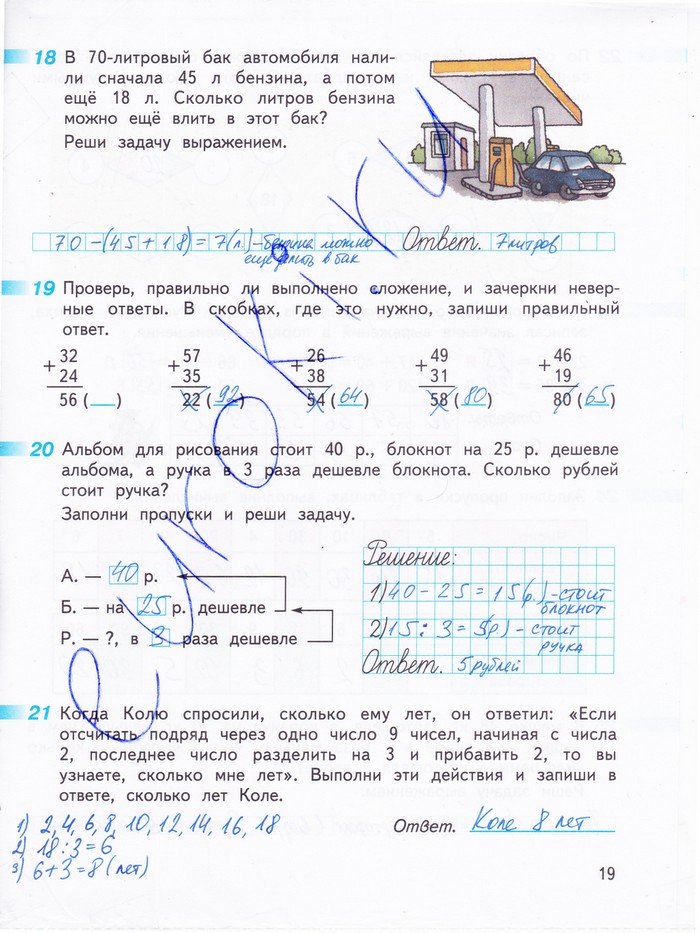 18 В 70-литровый бак автомобиля нали-
ли сначала 45 л бензина, а потом
ещё 18 л. Сколько литров бензина
можно ещё влить в этот бак?
Реши задачу выражением.
70 - (45 + 18) = 7(л) - бензина можно Ответ. 7 литров
ещё влить в бак
19 Проверь, правильно ли выполнено сложение, и зачеркни невер-
ные ответы. В скобках, где это нужно, запиши правильный
ответ.
+32 +57 +26 +49 +46
24 35 38 31 19
56 (__) 22 (92) 54 (64) 58 (80) 80 (65)
20 Альбом для рисования стоит 40 р., блокнот на 25 р. дешевле
альбома, а ручка в 3 раза дешевле блокнота. Сколько рублей
стоит ручка?
Заполни пропуски и реши задачу.
А. — 40 р.
Б. — на 25 р. дешевле
Р. — ?, в 3 раза дешевле
Решение:
1) 40 - 25 = 15(р.) - стоит
блокнот
2) 15 : 3 = 5(р) - стоит
ручка
Ответ. 5 рублей
21 Когда Колю спросили, сколько ему лет, он ответил: «Если
отсчитать подряд через одно число 9 чисел, начиная с числа
2, последнее число разделить на 3 и прибавить 2, то вы
узнаете, сколько мне лет». Выполни эти действия и запиши в
ответе, сколько лет Коле.
1) 2, 4, 6, 8, 10, 12, 14, 16, 18
2) 18 : 3 = 6
3) 6 + 3 = 8 (лет)
Ответ. Коле 8 лет
19